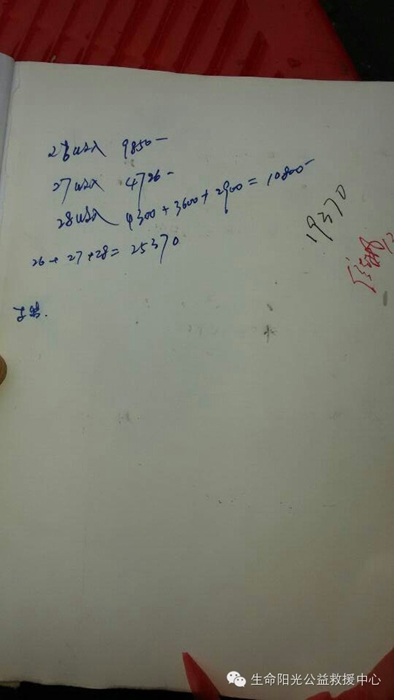 26收入 9850-
27收入 4726-
28收入 4300+3600+2900=10800-
26+27+28=25370
19370
生命阳光公益救援中心